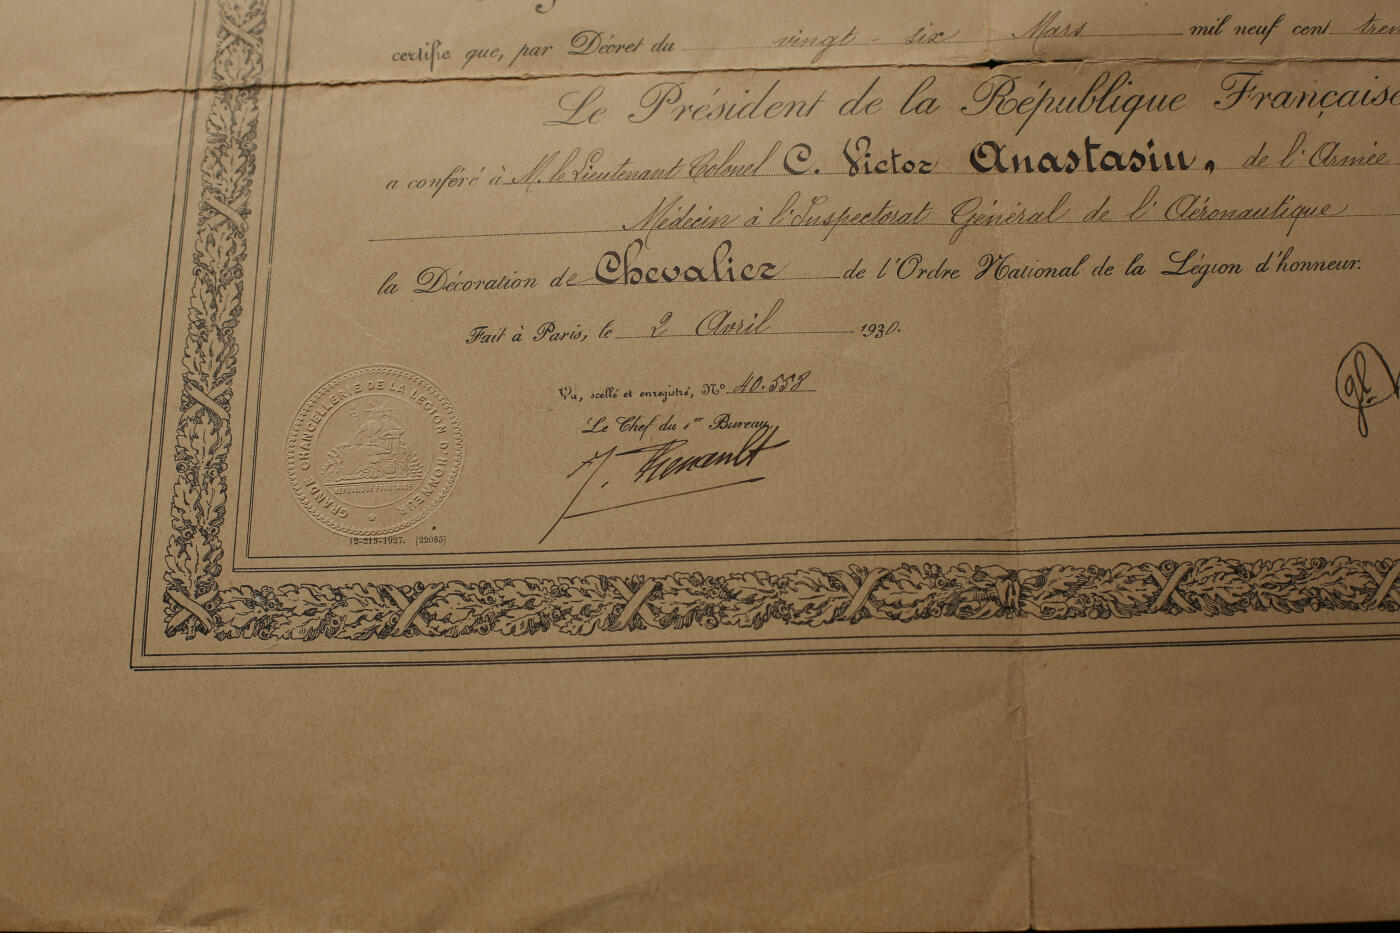 certifie que, par Décret du vingt-six Mars mil neuf cent tren
Le Président de la République Française
a conféré à M. le Lieutenant Colonel C. Victor Anastasiu, de l'Armée
Médecin à l'Inspectorat Général de l'Aéronautique
la Décoration de Chevalier de l'Ordre National de la Légion d'honneur.
Fait à Paris, le 2 Avril 1930.
Vu, scellé et enregistré, N° 40.558
Le Chef du 1er Bureau,
GRANDE CHANCELLERIE DE LA LEGION D'HONNEUR
REPUBLIQUE FRANÇAISE
12-213-1927. [22085]